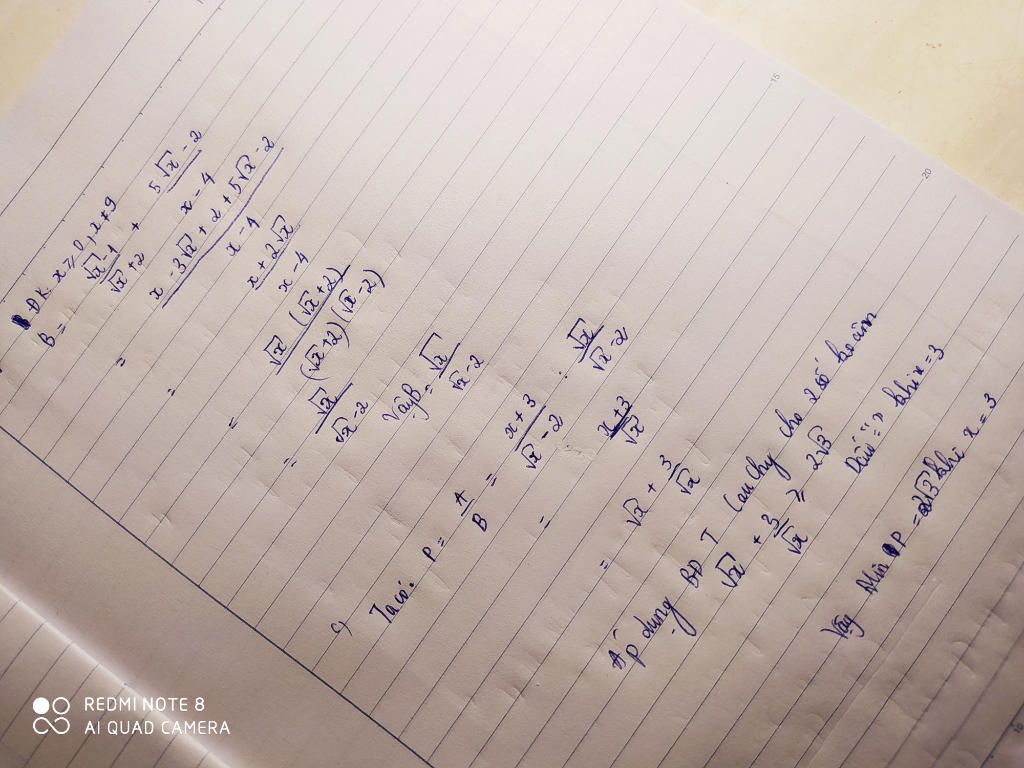 ĐK: x ≥ 0, x ≠ 9
B = (√x - 1)/(√x + 2) + (5√x - 2)/(x - 4)
= (x - 3√x + 2 + 5√x - 2)/(x - 4)
= (x + 2√x)/(x - 4)
= (√x (√x + 2))/((√x + 2)(√x - 2))
= √x/(√x - 2)
Vậy B = √x/(√x - 2)
Ta có: P = A/B = (x + 3)/(√x - 2) : √x/(√x - 2)
= (x + 3)/√x
= √x + 3/√x
Áp dụng BĐT Cauchy cho 2 số không âm
√x + 3/√x ≥ 2√3
Dấu "=" khi x = 3
Vậy Min P = 2√3 khi x = 3
15
20
REDMI NOTE 8
AI QUAD CAMERA